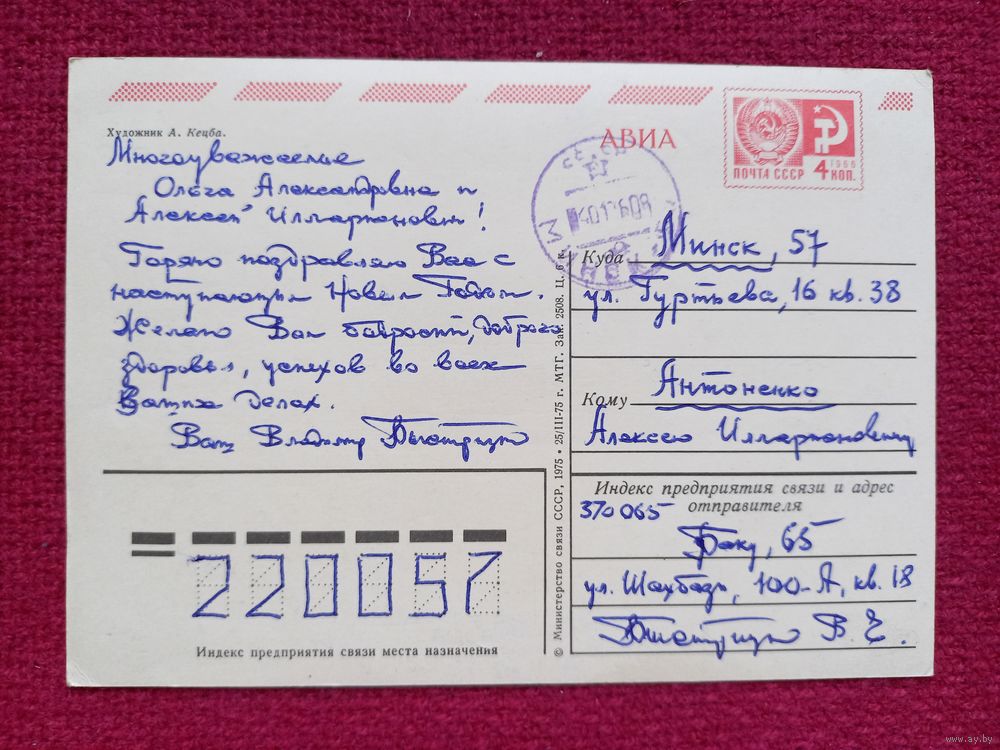 Художник А. Кецба.
АВИА
1966
ПОЧТА СССР 4 КОП.
Многоуважаемые
Ольга Александровна и
Алексей Илларионович!
Горячо поздравляю Вас с
наступающим Новым Годом.
Желаю Вам бодрости, доброго
здоровья, успехов во всех
Ваших делах.
Ваш Владимир
220057
Индекс предприятия связи места назначения
© Министерство связи СССР, 1975 • 25/III-75 г. МТГ. Зак. 2508. Ц. 6 к.
Куда Минск, 57
ул. Гуртьева, 16 кв. 38
Кому Антоненко
Алексею Илларионовичу
Индекс предприятия связи и адрес
отправителя
370065
Баку, 65
ул. Шахбази, 100-А, кв. 18
В. Е.
www.ay.by